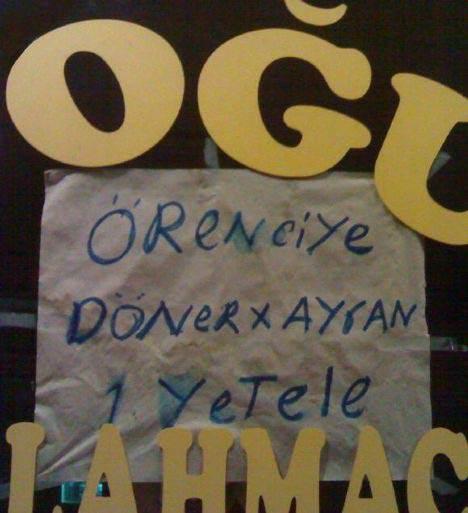 OĞU
ÖRENCİYE
DÖNER X AYRAN
1 YETELE
LAHMAC